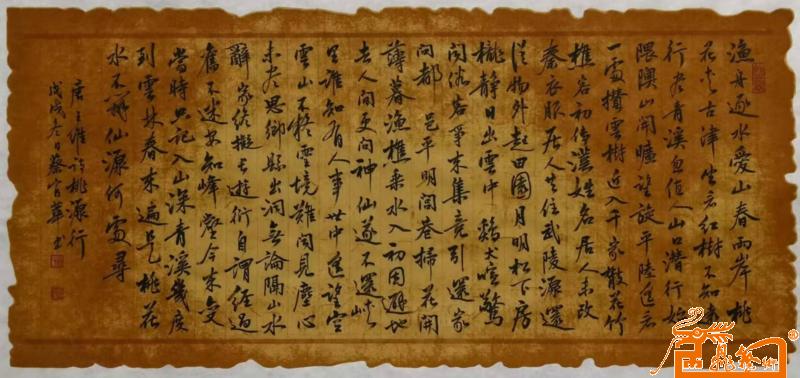 漁舟逐水愛山春兩岸桃
花夾古津坐看紅樹不知遠
行盡青溪忽值人山口潛行始
隈隩山開曠望旋平陸遥看
一處攢雲樹近入千家散花竹
樵客初傳漢姓名居人未改
秦衣服居人共住武陵源還
從物外起田園月明松下房
櫳靜日出雲中鷄犬喧驚
聞俗客爭來集競引還家
問都邑平明閭巷掃花開
薄暮漁樵乘水入初因避地
去人間更問神仙遂不還峽
里誰知有人事世中遥望空
雲山不疑靈境難聞見塵心
未盡思鄉縣出洞無論隔山水
辭家終擬長遊衍自謂經過
舊不迷安知峰壑今來變
當時只記入山深青溪幾度
到雲林春來遍是桃花
水不辨仙源何處尋
唐王維詩桃源行
戊戌冬日蔡官華書